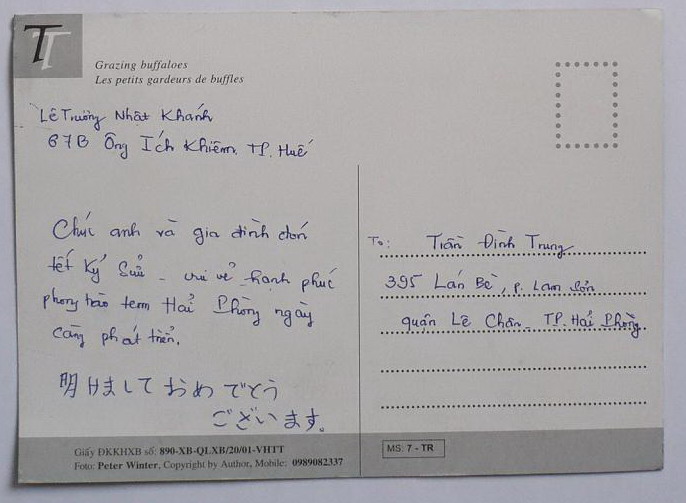 TT
Grazing buffaloes
Les petits gardeurs de buffles
Lê Trường Nhật Khánh
67B Ông Ích Khiêm. TP. Huế
Chúc anh và gia đình đón
tết Kỷ Sửu - vui vẻ - hạnh phúc
phong trào tem Hải Phòng ngày
càng phát triển.
明けましておめでとう
ございます。
To: Trần Đình Trung
395 Lán Bè, P. Lam Sơn
quận Lê Chân - TP. Hải Phòng
Giấy ĐKKHXB số: 890-XB-QLXB/20/01-VHTT
Foto: Peter Winter, Copyright by Author, Mobile: 0989082337
MS: 7 - TR